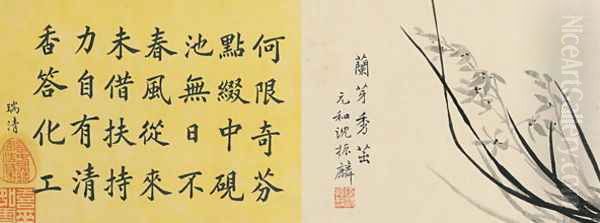 蘭芽秀茁
元和沈振麟
何限奇芬
點綴中硯
池無日不
春風從來
未借扶持
力自有清
香答化工
瑞清